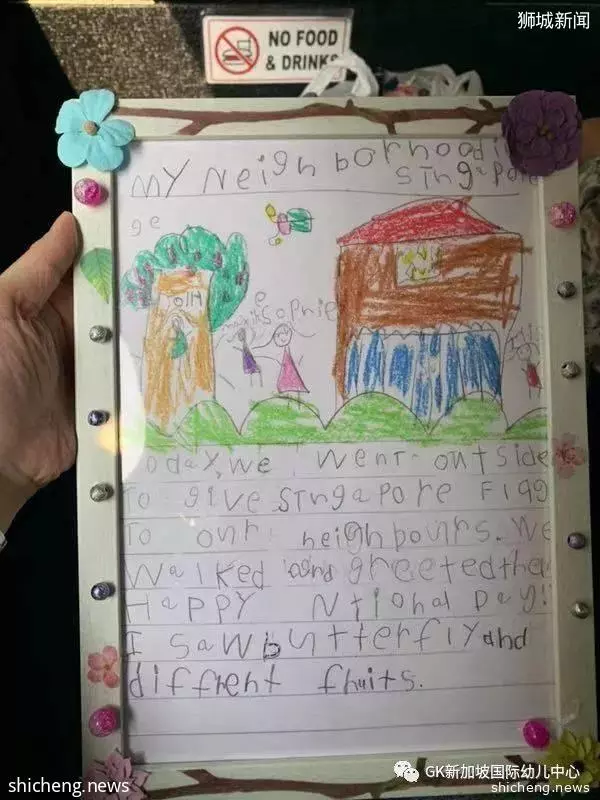 狮城新闻
NO FOOD
& DRINKS
MY Neighborhood in
singapore
ge
Sophie
Today, we went outside
To give singapore Flag
To our neighbours. We
Walked and greeted them
Happy Ntional Day!!
I saw butterfly and
diffrent fruits.
GK新加坡国际幼儿中心
shicheng.news
shicheng.news